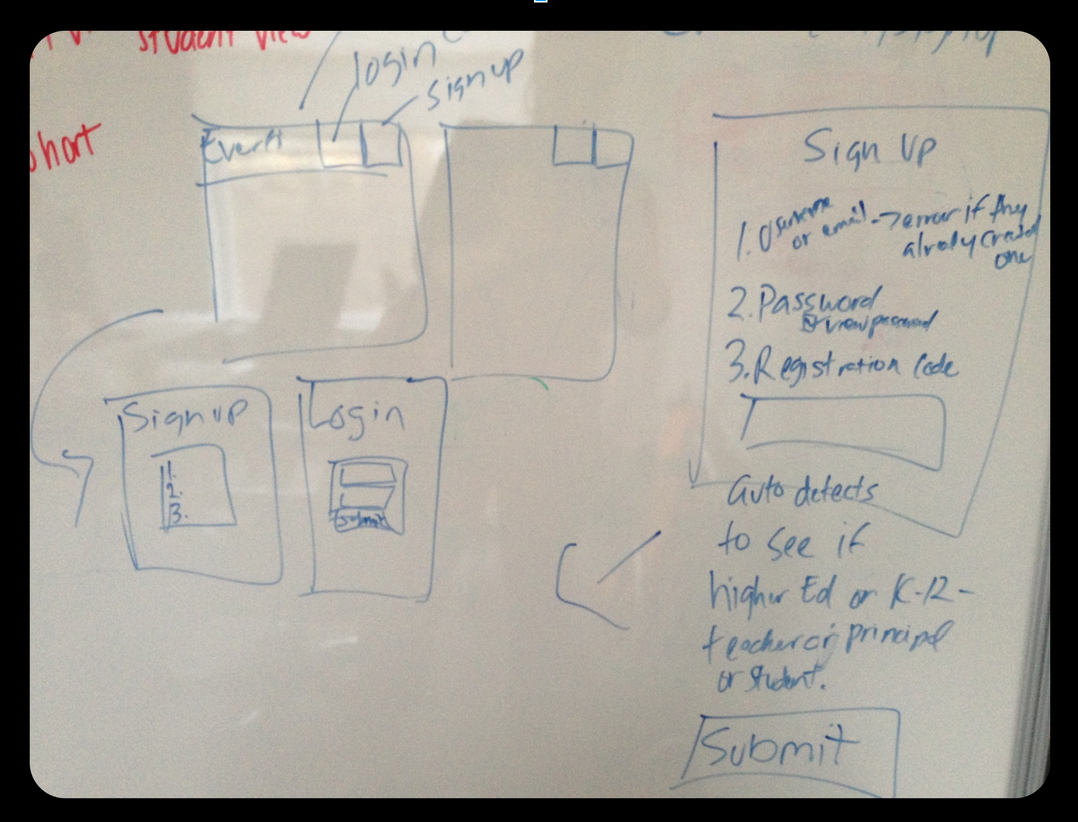 student view
login
sign up
Sign Up
1. Username
or email -> error if they
already created
one
2. Password
view password
3. Registration Code
Sign up
1.
2.
3.
Login
Submit
auto detects
to see if
higher Ed or K-12 -
teacher or principal
or student.
Submit